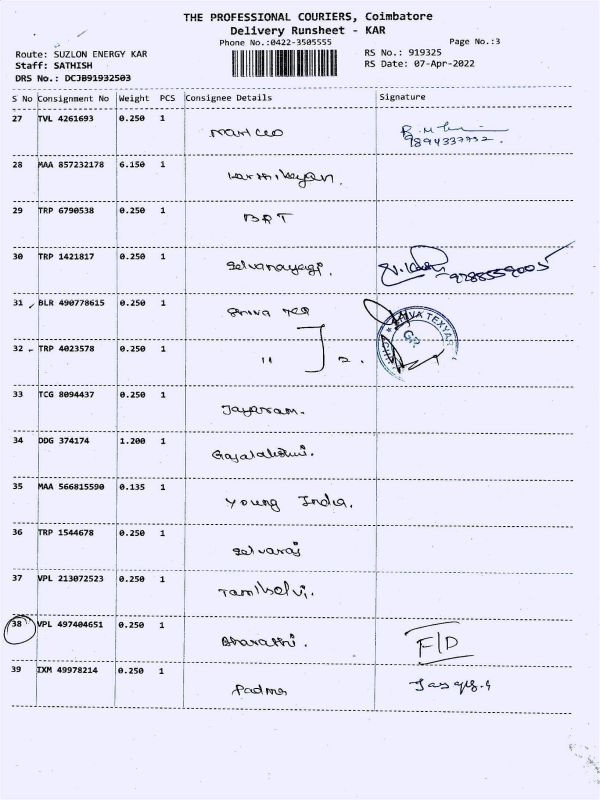 THE PROFESSIONAL COURIERS, Coimbatore
Delivery Runsheet - KAR
Phone No.:0422-3505555 Page No.:3
Route: SUZLON ENERGY KAR RS No.: 919325
Staff: SATHISH RS Date: 07-Apr-2022
DRS No.: DCJB91932503
S No Consignment No Weight PCS Consignee Details Signature
27 TVL 4261693 0.250 1
9894337992.
28 MAA 857232178 6.150 1 Karthikeyan.
29 TRP 6790538 0.250 1 BRT
30 TRP 1421817 0.250 1 Selvanayagi.
31 BLR 490778615 0.250 1 Shiva Tex SHIVA TEXYAR
32 TRP 4023578 0.250 1 " 2.
33 TCG 8094437 0.250 1 Jayaram.
34 DDG 374174 1.200 1 Gajalakshmi.
35 MAA 566815590 0.135 1 Young India.
36 TRP 1544678 0.250 1 Selvaraj
37 VPL 213072523 0.250 1 Tamilselvi.
38 VPL 497404651 0.250 1 Bharathi. F/D
39 IXM 49978214 0.250 1 Padma